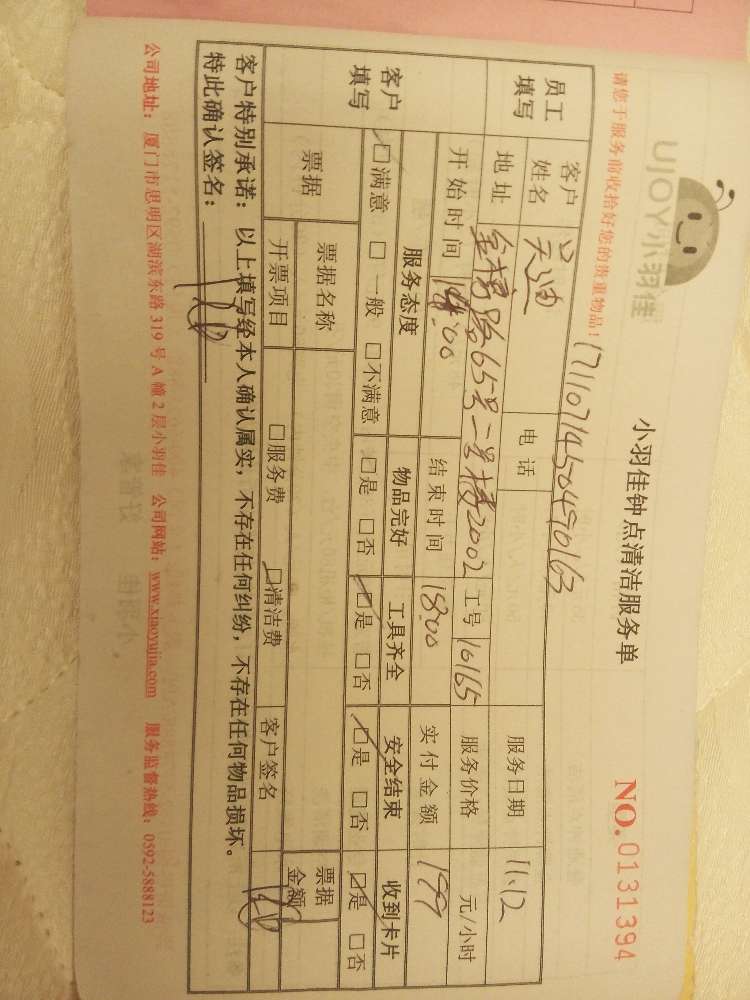 UJOY小羽佳
小羽佳钟点清洁服务单
NO.0131394
请您于服务前收拾好您的贵重物品！
1711071450490163
员工填写 客户姓名 吴迪 电话 服务日期 11.12
地址 金榜路65号二号楼2002 工号 10165 服务价格 元/小时
客户填写 开始时间 14:00 结束时间 18:00 实付金额 199
服务态度 物品完好 工具齐全 安全结束 收到卡片
□满意 □一般 □不满意 □是 □否 □是 □否 □是 □否 □是 □否
票据 票据名称 票据金额
开票项目 □服务费 □清洁费 客户签名
客户特别承诺：以上填写经本人确认属实，不存在任何纠纷，不存在任何物品损坏。
特此确认签名：
公司地址：厦门市思明区湖滨东路319号A幢2层小羽佳 公司网站：www.xiaoyujia.com 服务监督热线：0592-5888123